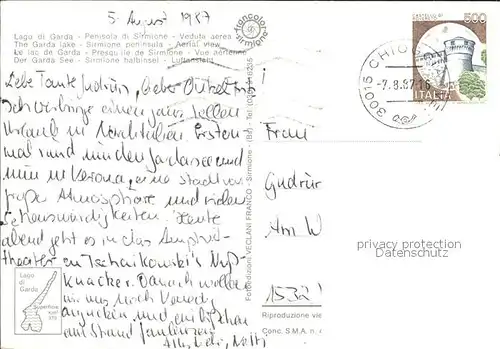 5. August 1987
Lago di Garda - Penisola di Sirmione - Veduta aerea
The Garda lake - Sirmione peninsula - Aerial view
Le lac de Garde - Presqu'île de Sirmione - Vue aérienne
Der Garda See - Sirmione halbinsel - Luftansicht
Liebe Tante Gudrun, lieber Onkel
ich verbringe einen ganz tollen
Urlaub in Norditalien. Erst ein-
mal rund um den Gardasee und
nun in Verona, eine Stadt von
großer Atmosphäre und vielen
Sehenswürdigkeiten. Heute
abend geht es in das Amphi-
theater zu Tschaikowski's Nuß-
knacker. Danach wollen
wir uns noch Venedig
angucken und ein bißchen
am Strand faulenzen
Alles Liebe,
Lago
di
Garda
Superficie
Kmq
370
francolor
Sirmione
Fotoedizioni VECLANI FRANCO - Sirmione - (BS) - Tel.
500
ITALIA
30015 CHIOGGIA
-7.8.87.16
Frau
Gudrun
Am W
1532
privacy protection
Datenschutz
Riproduzione vie
Conc. S.M.A. n.